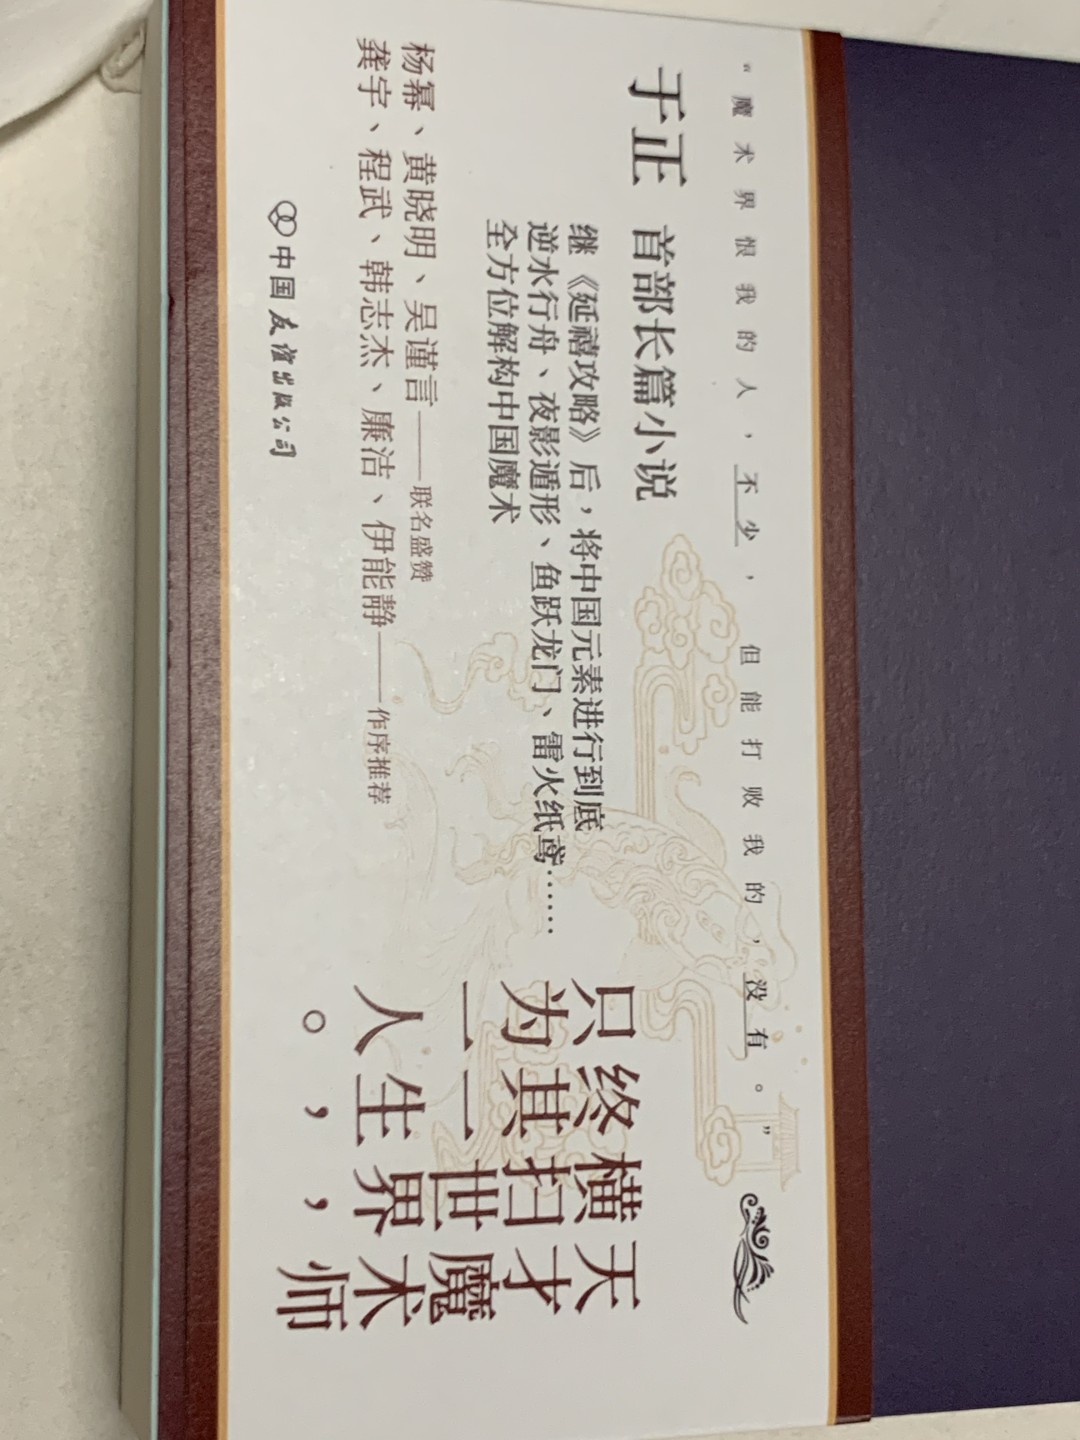 “魔术界恨我的人，不少，但能打败我的，没有。”
于正 首部长篇小说
继《延禧攻略》后，将中国元素进行到底
逆水行舟、夜影遁形、鱼跃龙门、雷火纸鸢……
全方位解构中国魔术
杨幂、黄晓明、吴谨言——联名盛赞
龚宇、程武、韩志杰、廉洁、伊能静——作序推荐
中国友谊出版公司
天才魔术师
横扫世界，
终其一生，
只为一人。